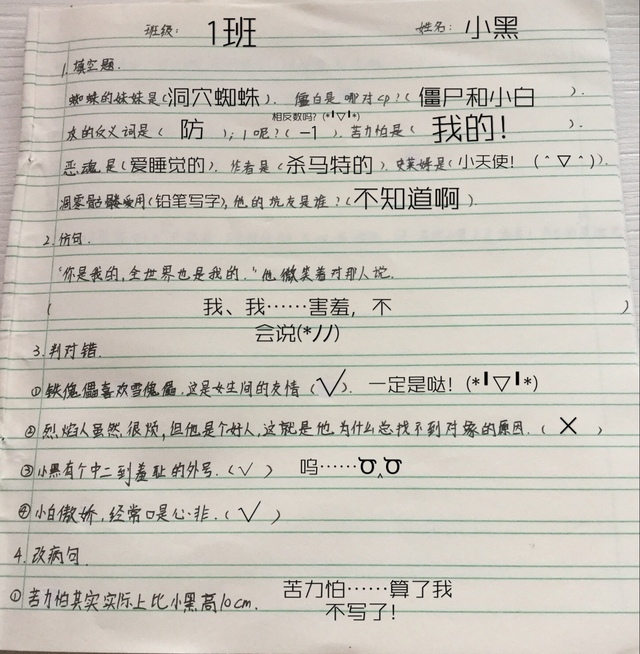 班级: 1班 姓名: 小黑
1.填空题.
蜘蛛的妹妹是(洞穴蜘蛛). 僵白是哪对cp?(僵尸和小白).
相反数吗？(*╹▽╹*)
灰的反义词是(防); 1呢?(-1). 苦力怕是(我的!).
恶魂是(爱睡觉的). 作者是(杀马特的). 史莱姆是(小天使! (＾▽＾)).
凋零骷髅爱用(铅笔写字), 他的坑友是谁?(不知道啊).
2.仿句.
"你是我的,全世界也是我的."他微笑着对那人说.
(我、我……害羞，不
会说(*ﾉﾉ))
3.判对错.
①铁傀儡喜欢雪傀儡.这是女生间的友情(√). 一定是哒! (*╹▽╹*)
②烈焰人虽然很烦,但他是个好人,这就是他为什么总找不到对象的原因.(×)
③小黑有个中二到羞耻的外号.(√) 呜……
④小白傲娇,经常口是心非.(√)
4.改病句.
①苦力怕其实实际上比小黑高10cm. 苦力怕……算了我
不写了!